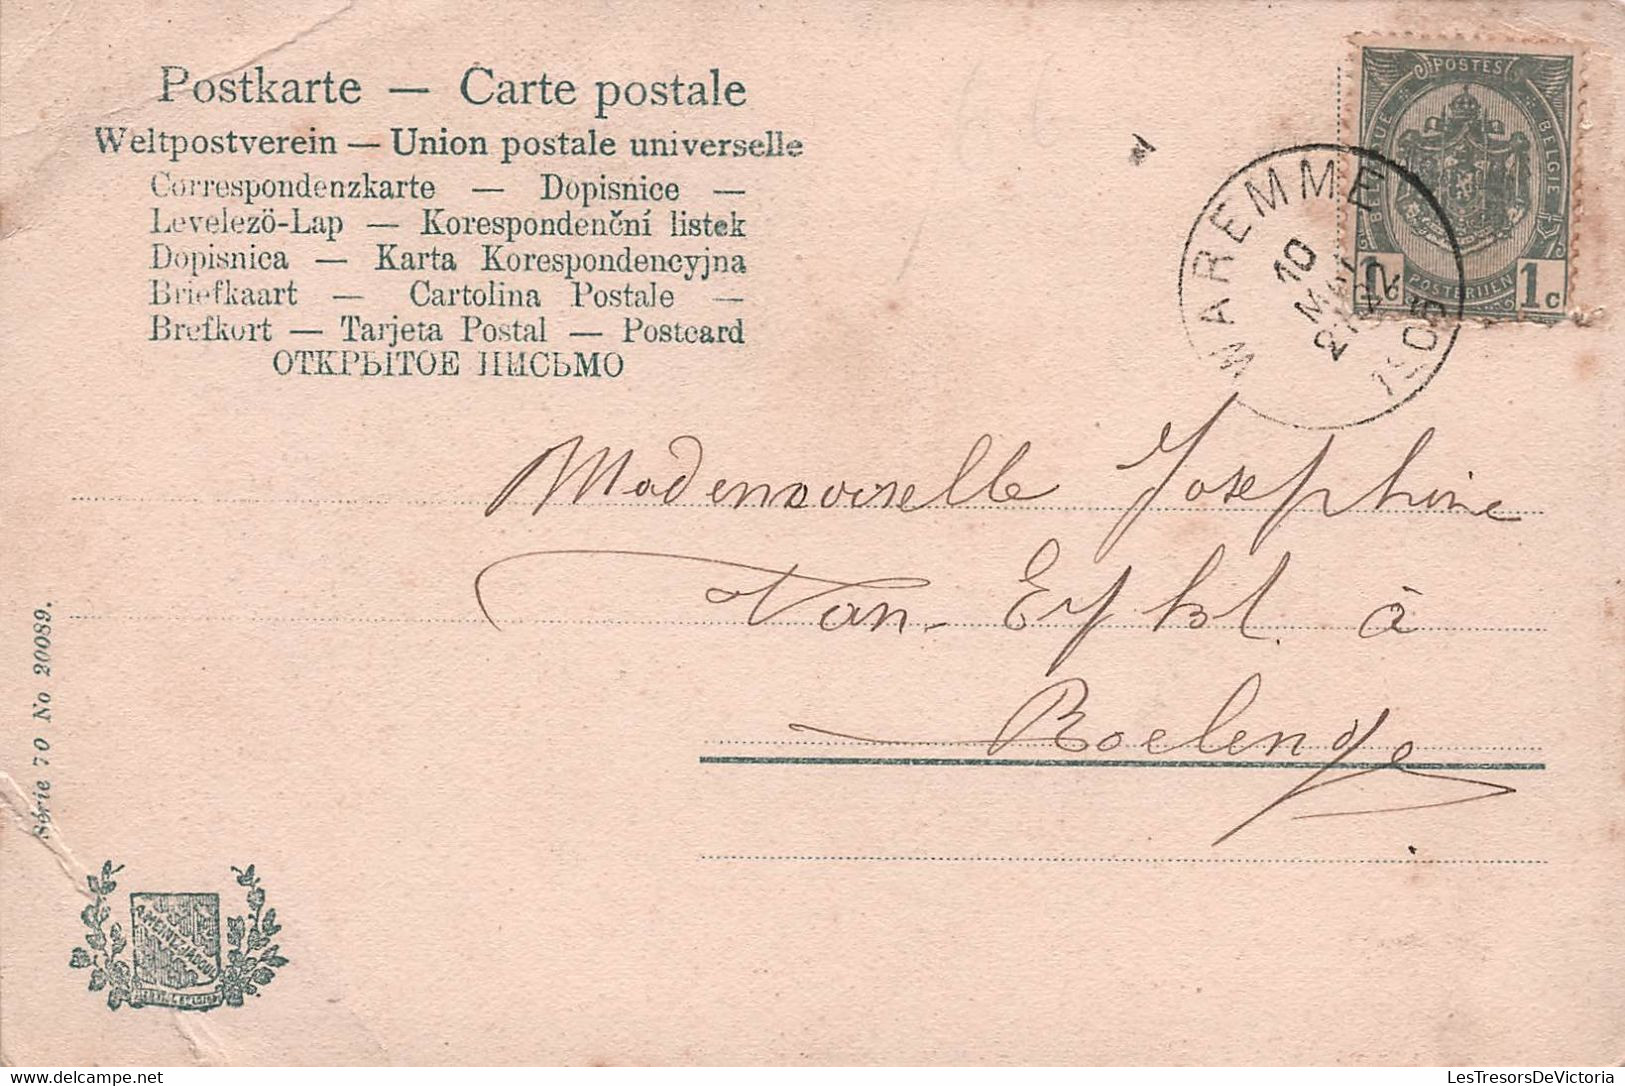 Postkarte — Carte postale
Weltpostverein — Union postale universelle
Correspondenzkarte — Dopisnice —
Levelezö-Lap — Korespondenční listek
Dopisnica — Karta Korespondencyjna
Briefkaart — Cartolina Postale —
Brefkort — Tarjeta Postal — Postcard
ОТКРЫТОЕ ПИСЬМО
POSTES
BELGIQUE BELGIE
POSTERIJEN
1c 1c
WAREMME
10
MAI
1905
Mademoiselle Josephine
Van-Eykt. à
Roelenge
Série 70 No 20089.
LesTresorsDeVictoria